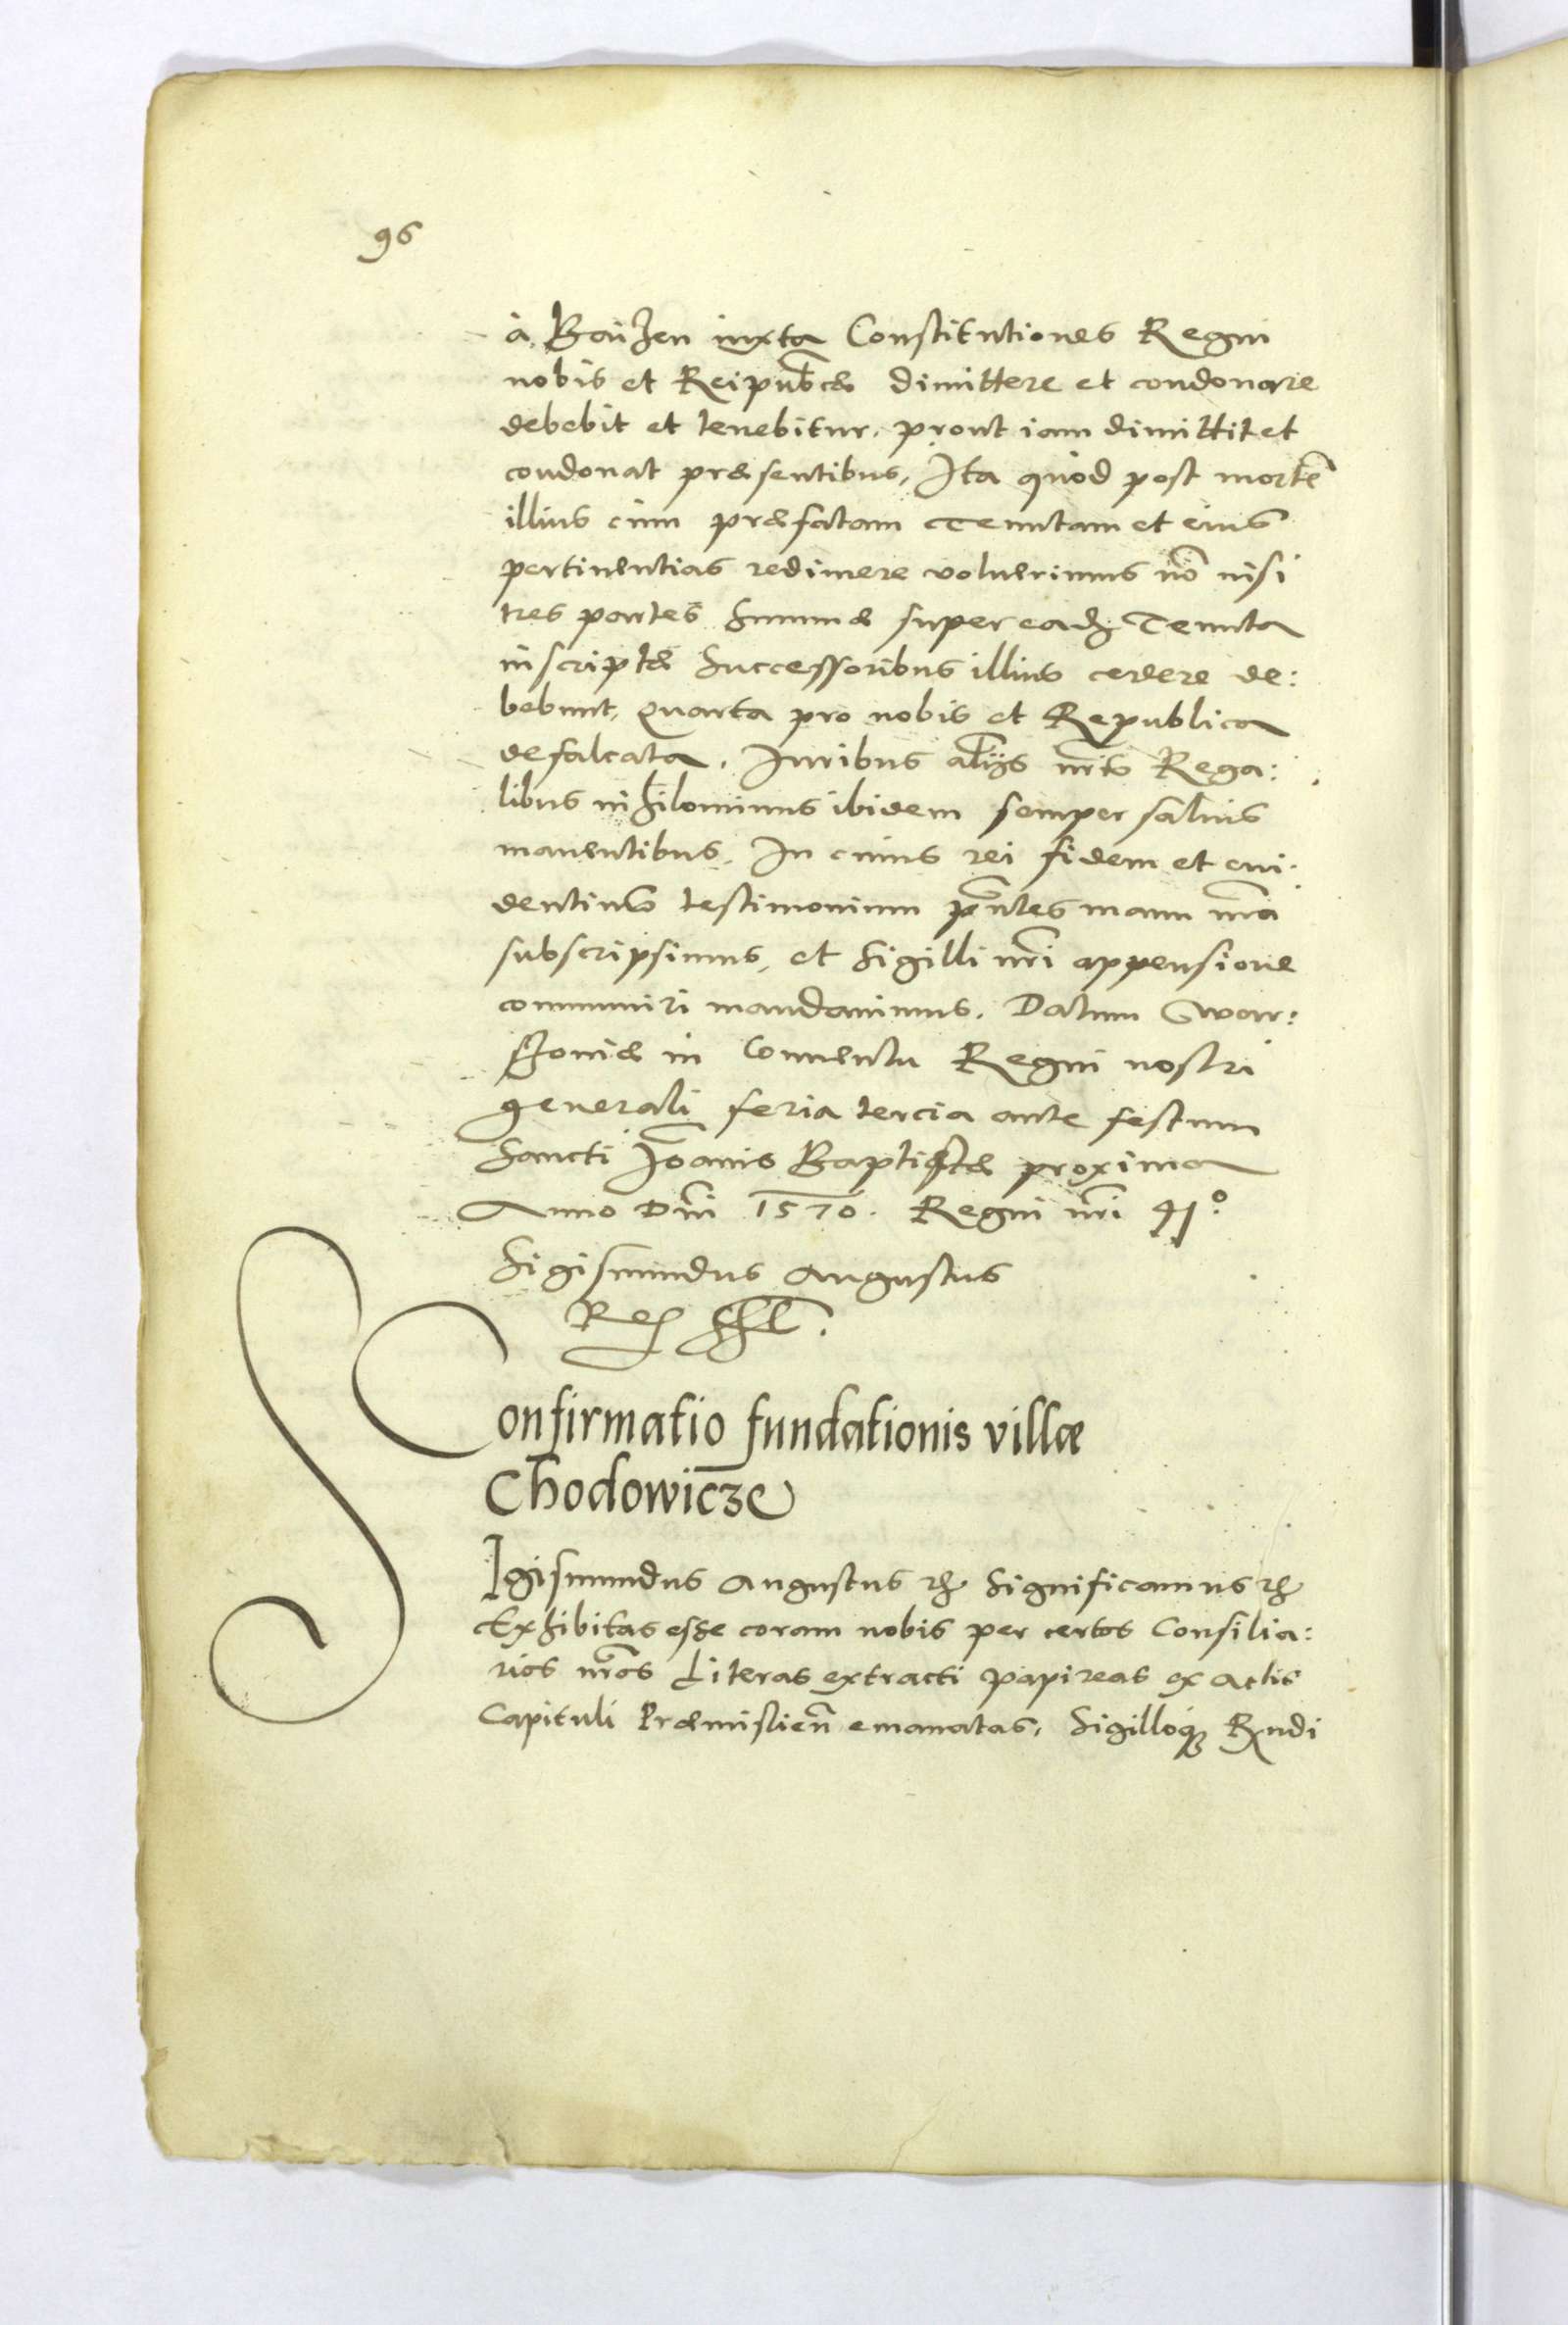 96
à Baiʒen iuxta Constitutiones Regni
nobis et Reipub̃cæ dimittere et condonare
debebit et tenebitur, prout iam dimittit et
condonat præsentibus, Ita quod post mortẽ
illius cum præfatam Tenutam et eius
pertinentias redimere voluerimus nõ nisi
tres partes Summæ super eadꝫ Tenuta
inscriptæ Successoribus illius cedere de:
bebunt, Quarta pro nobis et Republica
defalcata. Iuribus alijs nr̃is Rega:
libus nihilominus ibidem semper saluis
manentibus. In cuius rei fidem et eui:
dentius testimonium pñtes manu nr̃a
subscripsimus, et Sigilli nr̃i appensione
communiri mandauimus. Datum Var:
schouiæ in Conuentu Regni nostri
generali feria tercia ante festum
Sancti Ioãnis Baptistæ proxima
Anno Dñi 1570. Regni nr̃i 41º
Sigismundus Augustus
Rex sst.
Confirmatio fundationis villæ
Chodowicze
SIgismundus Augustus ꝛc̃ Significamus ꝛc̃
Exhibitas esse coram nobis per certos Consilia:
rios nr̃os Literas extracti papireas ex Actis
Capituli Præmislieñ emanatas, Sigilloqꝫ Rx̃ndi